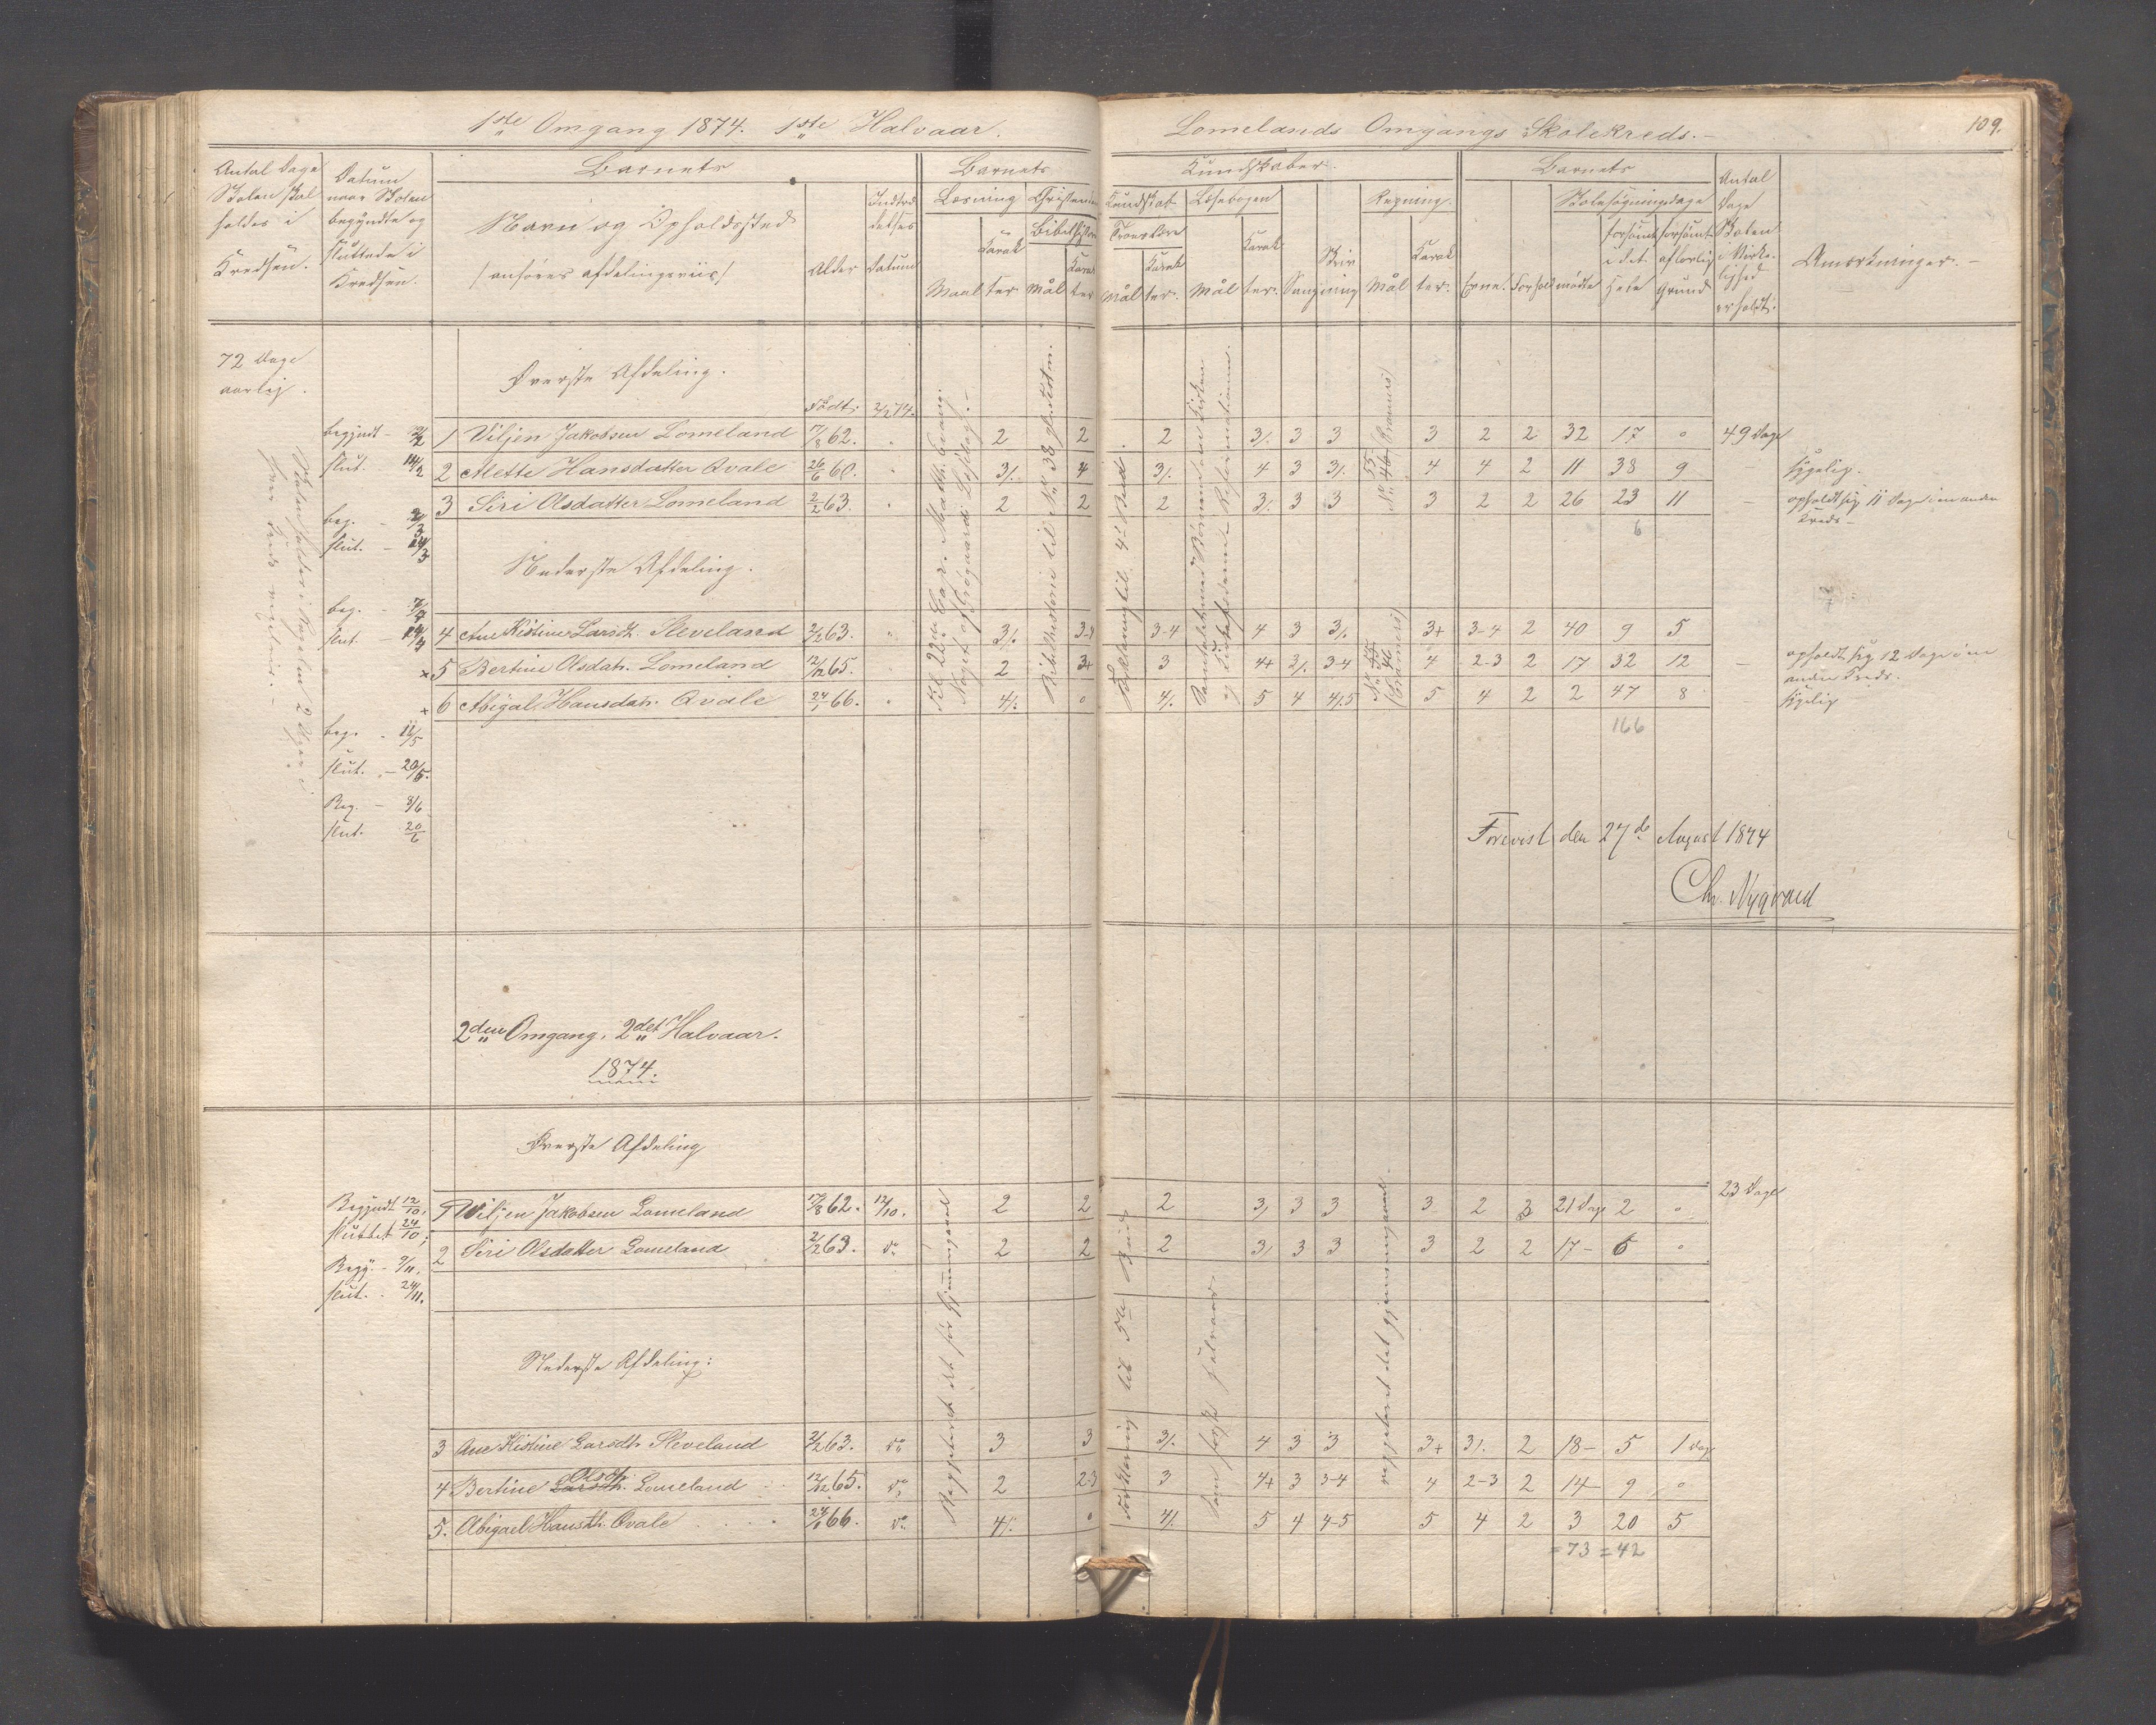 1ste Omgang 1874. 1ste Halvaar.
Lomelands Omgangs Skolekreds.-
109.
Antal Dage Skolen skal holdes i Kredsen.
Datum naar Skolen begyndte og sluttede i Kredsen.
Barnets
Navn og Opholdssted
/anføres afdelingsviis/
Alder
Indtrædelses Datum
Barnets
Kundskaber.
Læsning
Maal
Karakter
Christendom
Bibelhistorie
Mål
Karakter
Kundskab
Troeslære
Mål
Karakter.
Læsebogen
Mål
Karakter.
Sang
Skrivning
Regning.
Mål
Karakter.
Barnets
Evne.
Forhold
Skolesøgningsdage
mødte
forsømt i det Hele
forsømt af lovlig Grund
Antal Dage Skolen i Virkelighed er holdt.
Anmærkninger.-
72 Dage
aarlig.
Øverste Afdeling.
Født: 2/2 74.
begyndt - 2/2 1 Viljen Jakobsen Lomeland 17/8 62. 2 2 2 3/. 3 3 3 2 2 32 17 0 49 Dage
slut. 14/2 2 Mette Hansdatter Qvale 26/6 60. 3/. 4 3/. 4 3 3/. 4 4 2 11 38 9 - sygelig.
3 Siri Olsdatter Lomeland 2/2 63. 2 2 2 3/. 3 3 3 2 2 26 23 11 - opholdt sig 11 Dage i en anden
Kreds-
6
beg. - 2/3
slut. - 14/3
Nederste Afdeling.
beg. - 7/4
slut. - 14/4 4 Ane Kistine Larsdt. Sleveland 2/2 63. 3/. 3-4 3-4 4 3 3/. 3+ 3-4 2 40 9 5
x 5 Bertine Olsdatr. Lomeland 12/12 65. 2 3+ 3 4+ 3/. 3-4 4 2-3 2 17 32 12 - opholdt sig 12 Dage i en
anden Kreds.
+ 6 Abigal Hansdatr. Qvale 24/1 66. 4/. 0 4/. 5 4 4/.5 5 4 2 2 47 8 sygelig
166
beg. - 11/5
slut. - 20/5.
Beg. - 8/6
slut. 20/6
Til 22de Cap. Matth. Evang.
Bibelhistorie til No 38 gl. Testm.
Forklaring til 4de Bud
Forevist den 27de August 1874
Chr. Nygaard
2den Omgang, 2det Halvaar.
1874.
Øverste Afdeling
Begyndt 12/10; 1 Viljen Jakobsen Lomeland 17/8 62. 12/10. 2 2 2 3/ 3 3 3 2 2 21 Dage 2 0 23 Dage
sluttet 24/10; 2 Siri Olsdatter Lomeland 2/2 63. do 2 2 2 3/ 3 3 3 2 2 17 - 6 0
Begy. - 9/11.
slut. . 24/11.
Nederste Afdeling:
3 Ane Kistine Larsdtr Sleveland 2/2 63. do 3 3 3/. 4 3 3 3+ 3/. 2 18 - 5 1 Dag
4 Bertine Larsdtr. Olsdtr. Lomeland 12/12 65. do 2 2-3 3 4+ 3 3-4 4 2-3 2 14 - 9 0
5. Abigael Hansdt. Qvale 24/1 66. do 4/. 0 4/. 5 4 4-5 5 4 2 3 20 5
= 73 = 42
Reppeteret det før gjennemgaaede
Forklaring til 5te Bud
Som første Halvaar
reppeteret det gjennemgaaede